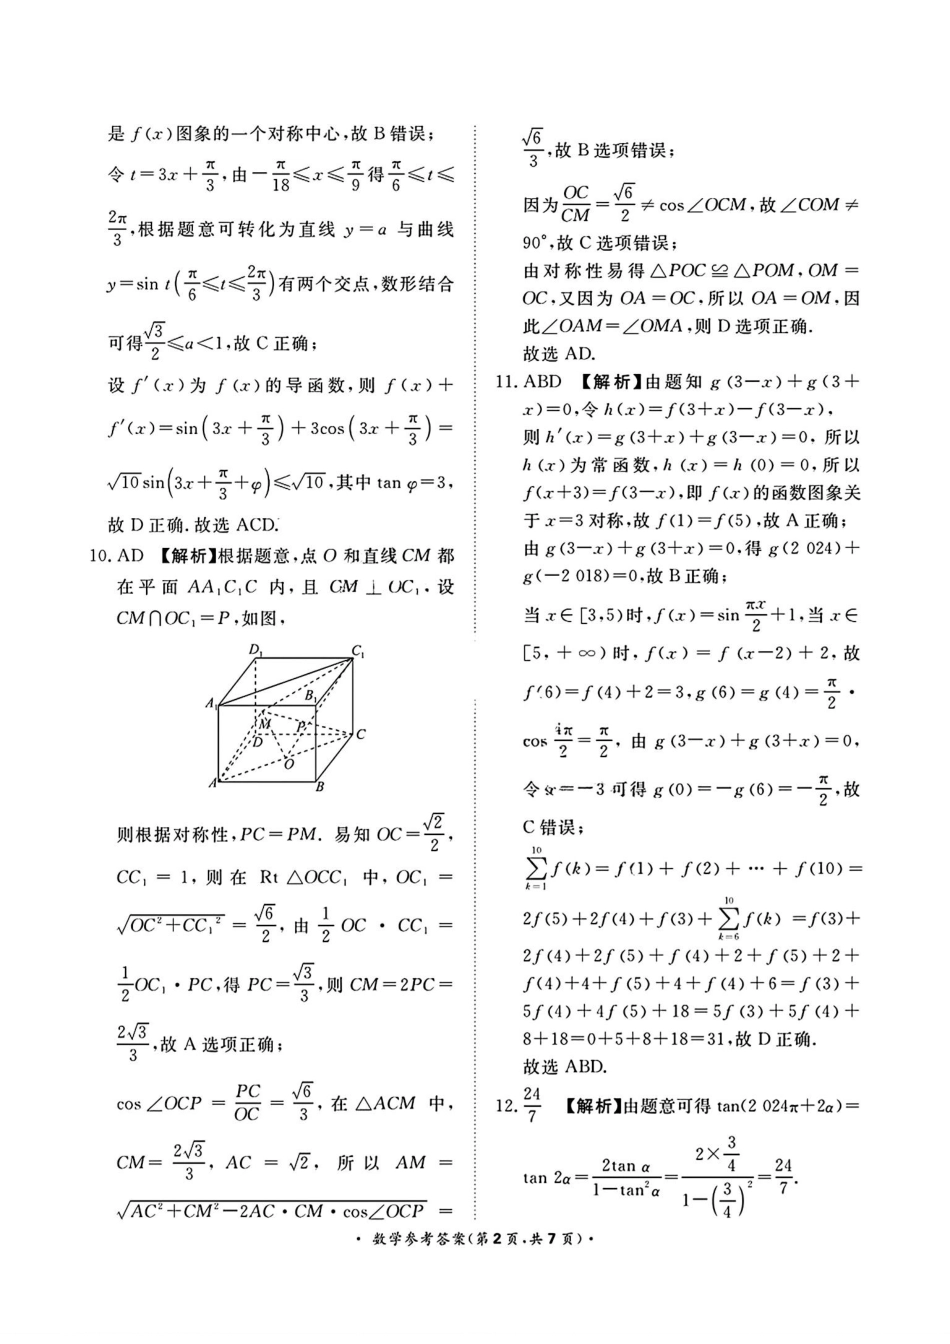 是 f(x)图象的一个对称中心,故 B 错误;
令 t=3x+π/3,由-π/18≤x≤π/9得π/6≤t≤
2π/3,根据题意可转化为直线 y=a 与曲线
y=sin t(π/6≤t≤2π/3)有两个交点,数形结合
可得√3/2≤a<1,故 C 正确;
设 f′(x)为 f(x)的导函数,则 f(x)+
f′(x)=sin(3x+π/3)+3cos(3x+π/3)=
√10 sin(3x+π/3+φ)≤√10,其中 tan φ=3,
故 D 正确.故选 ACD.
10. AD 【解析】根据题意,点 O 和直线 CM 都
在平面 AA₁C₁C 内,且 CM⊥OC₁,设
CM∩OC₁=P,如图,
D₁ C₁
A₁ B₁
M P
D C
O
A B
则根据对称性,PC=PM. 易知 OC=√2/2,
CC₁=1,则在 Rt△OCC₁ 中,OC₁=
√(OC²+CC₁²)=√6/2,由1/2 OC·CC₁=
1/2 OC₁·PC,得 PC=√3/3,则 CM=2PC=
2√3/3,故 A 选项正确;
cos∠OCP=PC/OC=√6/3,在△ACM 中,
CM=2√3/3,AC=√2,所以 AM=
√(AC²+CM²-2AC·CM·cos∠OCP)=
√6/3,故 B 选项错误;
因为OC/CM=√6/2≠cos∠OCM,故∠COM≠
90°,故 C 选项错误;
由对称性易得△POC≌△POM,OM=
OC,又因为 OA=OC,所以 OA=OM,因
此∠OAM=∠OMA,则 D 选项正确.
故选 AD.
11. ABD 【解析】由题知 g(3-x)+g(3+
x)=0,令 h(x)=f(3+x)-f(3-x),
则 h′(x)=g(3+x)+g(3-x)=0,所以
h(x)为常函数,h(x)=h(0)=0,所以
f(x+3)=f(3-x),即 f(x)的函数图象关
于 x=3 对称,故 f(1)=f(5),故 A 正确;
由 g(3-x)+g(3+x)=0,得 g(2 024)+
g(-2 018)=0,故 B 正确;
当 x∈[3,5)时,f(x)=sin πx/2+1,当 x∈
[5,+∞)时,f(x)=f(x-2)+2,故
f(6)=f(4)+2=3,g(6)=g(4)=π/2·
cos 4π/2=π/2,由 g(3-x)+g(3+x)=0,
令 x=-3 可得 g(0)=-g(6)=-π/2,故
C 错误;
∑(k=1→10) f(k)=f(1)+f(2)+…+f(10)=
2f(5)+2f(4)+f(3)+∑(k=6→10) f(k)=f(3)+
2f(4)+2f(5)+f(4)+2+f(5)+2+
f(4)+4+f(5)+4+f(4)+6=f(3)+
5f(4)+4f(5)+18=5f(3)+5f(4)+
8+18=0+5+8+18=31,故 D 正确.
故选 ABD.
12. 24/7 【解析】由题意可得 tan(2 024π+2α)=
tan 2α=2tan α/(1-tan²α)=(2×3/4)/(1-(3/4)²)=24/7.
·数学参考答案(第 2 页,共 7 页)·